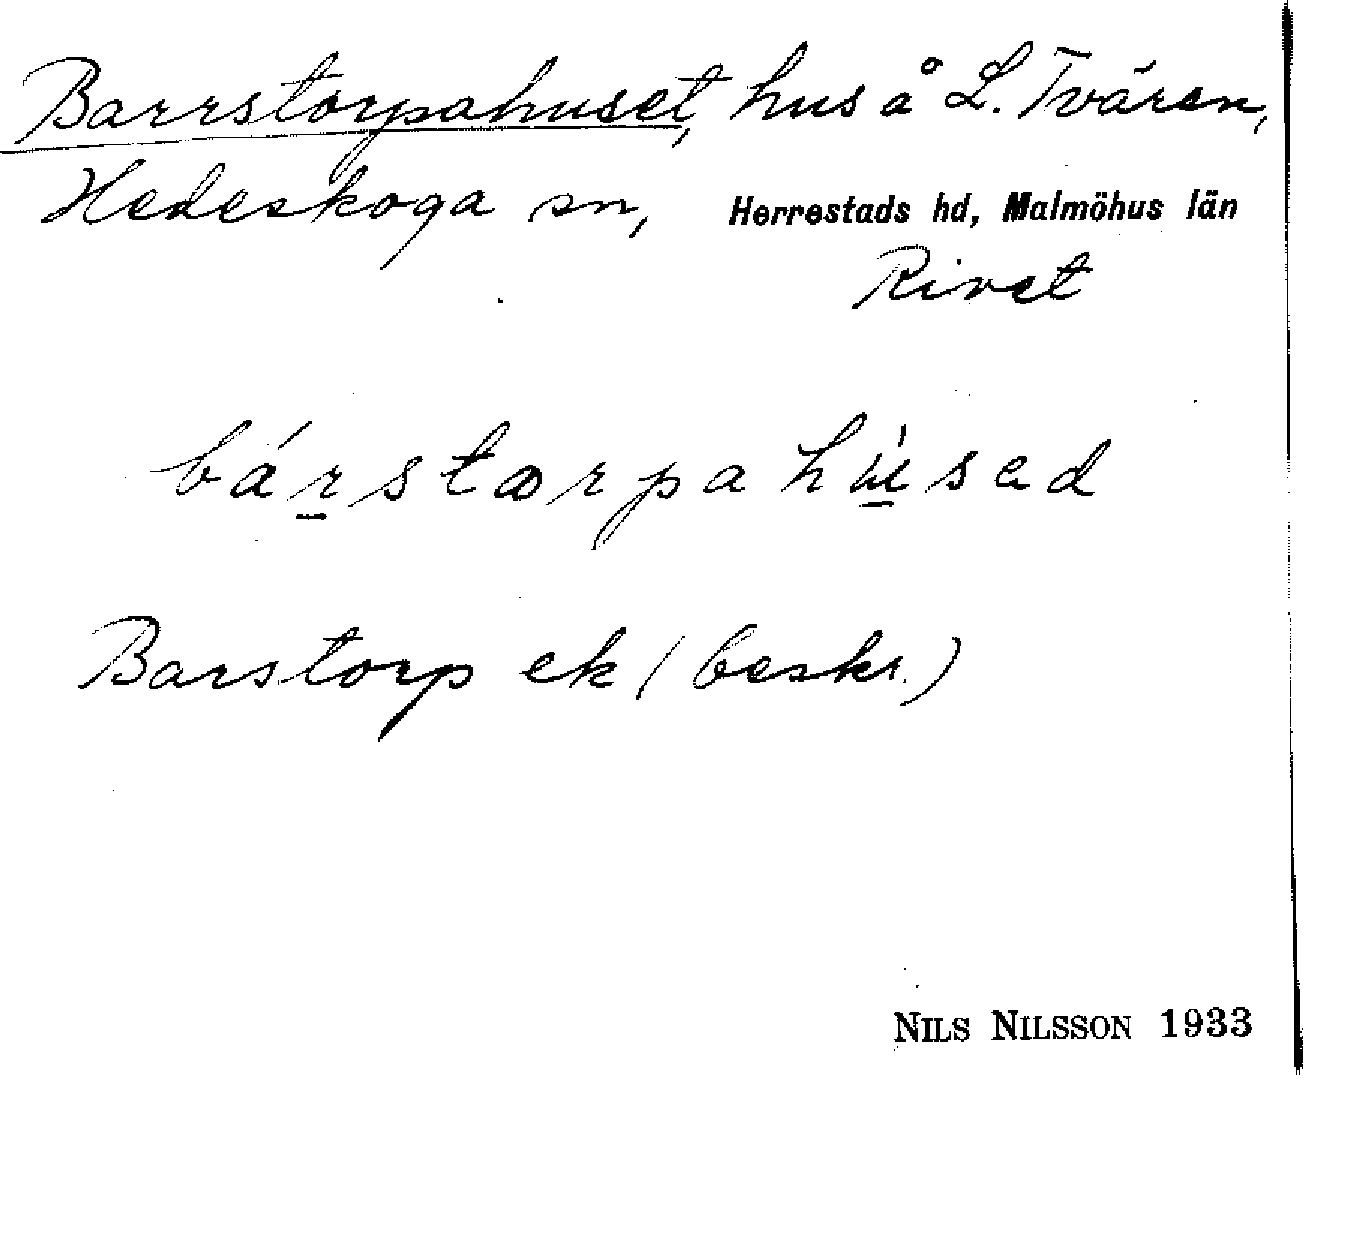 Barrstorpahuset, hus å L. Tvären,
Hedeskoga sn, Herrestads hd, Malmöhus län
Rivet
bár̲størpahu̲̍sed
Barstorp ek (beskr.)
NILS NILSSON 1933